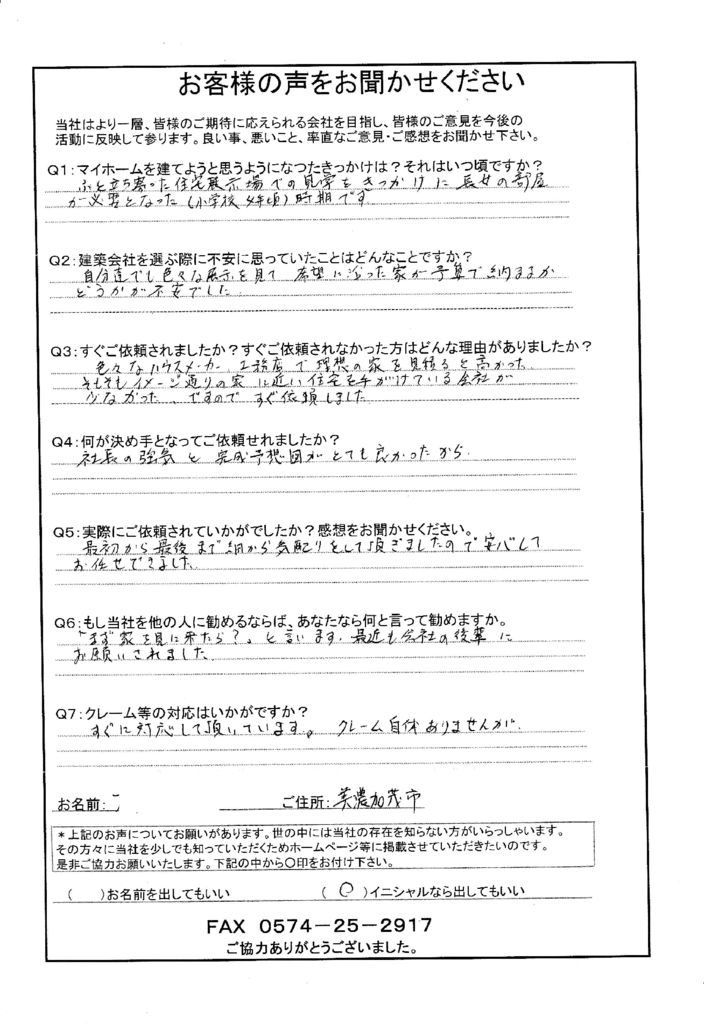 お客様の声をお聞かせください
当社はより一層、皆様のご期待に応えられる会社を目指し、皆様のご意見を今後の
活動に反映して参ります。良い事、悪いこと、率直なご意見・ご感想をお聞かせ下さい。
Q1:マイホームを建てようと思うようになつたきっかけは?それはいつ頃ですか?
ふと立ち寄った住宅展示場での見学をきっかけに長女の部屋
が必要となった(小学校4年頃)時期です
Q2:建築会社を選ぶ際に不安に思っていたことはどんなことですか?
自分達でも色々な展示を見て 希望に沿った家が予算で納まるか
どうかが不安でした
Q3:すぐご依頼されましたか?すぐご依頼されなかった方はどんな理由がありましたか?
色々なハウスメーカー、工務店で理想の家を見積ると高かった
そもそもイメージ通りの家に近い住宅を手がけている会社が
少なかった、ですので すぐ依頼しました
Q4:何が決め手となってご依頼せれましたか?
社長の強気と完成予想図がとても良かったから.
Q5:実際にご依頼されていかがでしたか?感想をお聞かせください。
最初から最後まで細から気配りをして頂きましたので安心して
お任せできました
Q6:もし当社を他の人に勧めるならば、あなたなら何と言って勧めますか。
「まず家を見に来たら?」と言います. 最近も会社の後輩に
お願いされました
Q7:クレーム等の対応はいかがですか?
すぐに対応して頂いています。 クレーム自体ありませんが.
お名前:
ご住所:美濃加茂市
*上記のお声についてお願いがあります。世の中には当社の存在を知らない方がいらっしゃいます。
その方々に当社を少しでも知っていただくためホームページ等に掲載させていただきたいのです。
是非ご協力お願いいたします。下記の中から〇印をお付け下さい。
( )お名前を出してもいい (〇)イニシャルなら出してもいい
FAX 0574-25-2917
ご協力ありがとうございました。